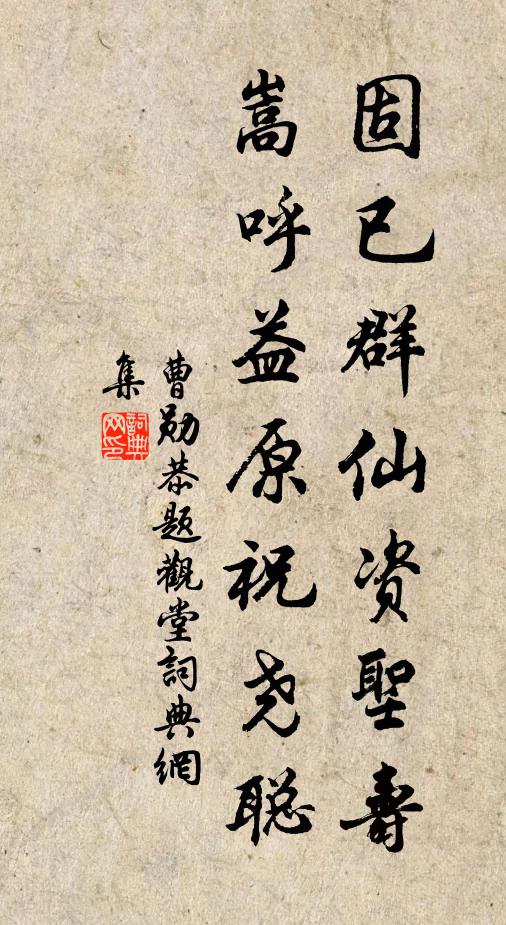 固已群仙资聖壽
嵩呼益原祝尧聪
曹勋恭题觀堂詞典網
集
詞典
网印